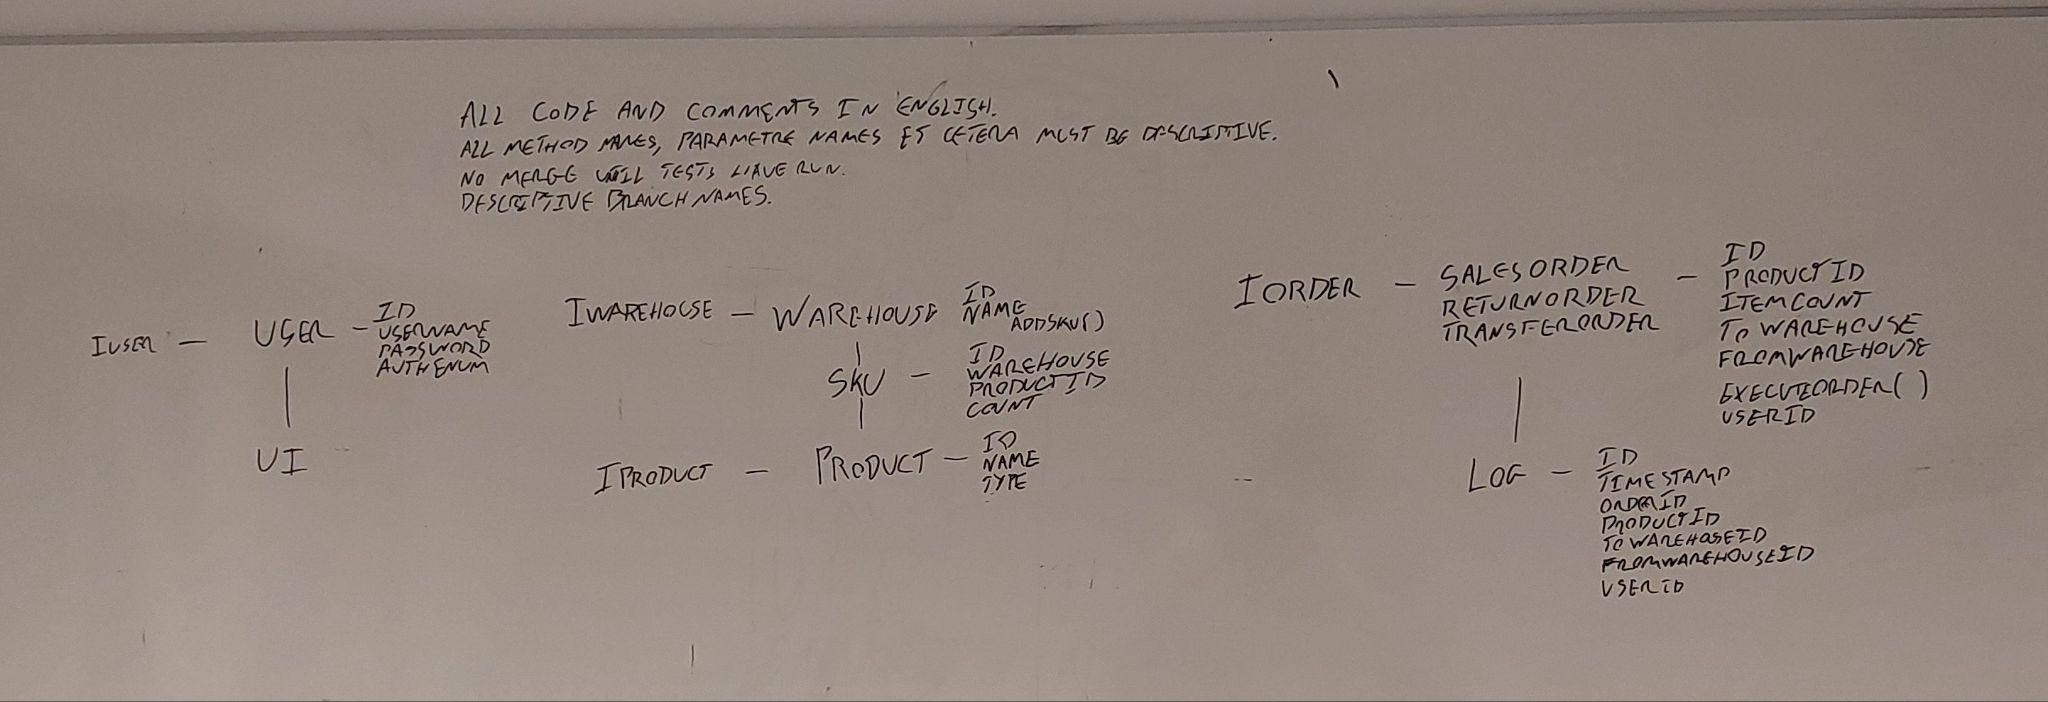 ALL CODE AND COMMENTS IN ENGLISH.
ALL METHOD NAMES, PARAMETRE NAMES ET CETERA MUST BE DESCRIPTIVE.
NO MERGE UNTIL TESTS HAVE RUN.
DESCRIPTIVE BRANCH NAMES.
IUSER — USER — ID
USERNAME
PASSWORD
AUTHENUM
UI
IWAREHOUSE — WAREHOUSE ID
NAME
ADDSKU()
SKU — ID
WAREHOUSE
PRODUCTID
COUNT
IPRODUCT — PRODUCT — ID
NAME
TYPE
IORDER — SALESORDER — ID
RETURNORDER
TRANSFERORDER
PRODUCTID
ITEMCOUNT
TOWAREHOUSE
FROMWAREHOUSE
EXECUTEORDER()
USERID
LOG — ID
TIMESTAMP
ORDERID
PRODUCTID
TOWAREHOSEID
FROMWAREHOUSEID
USERID